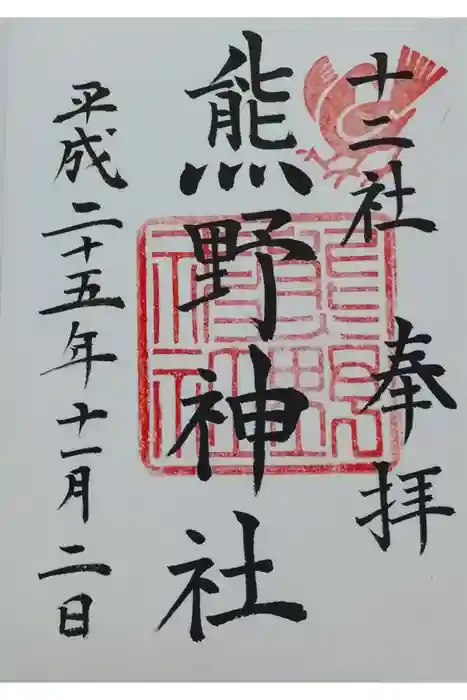 十二社
奉拝
熊野神社
熊野神社
平成二十五年十一月二日